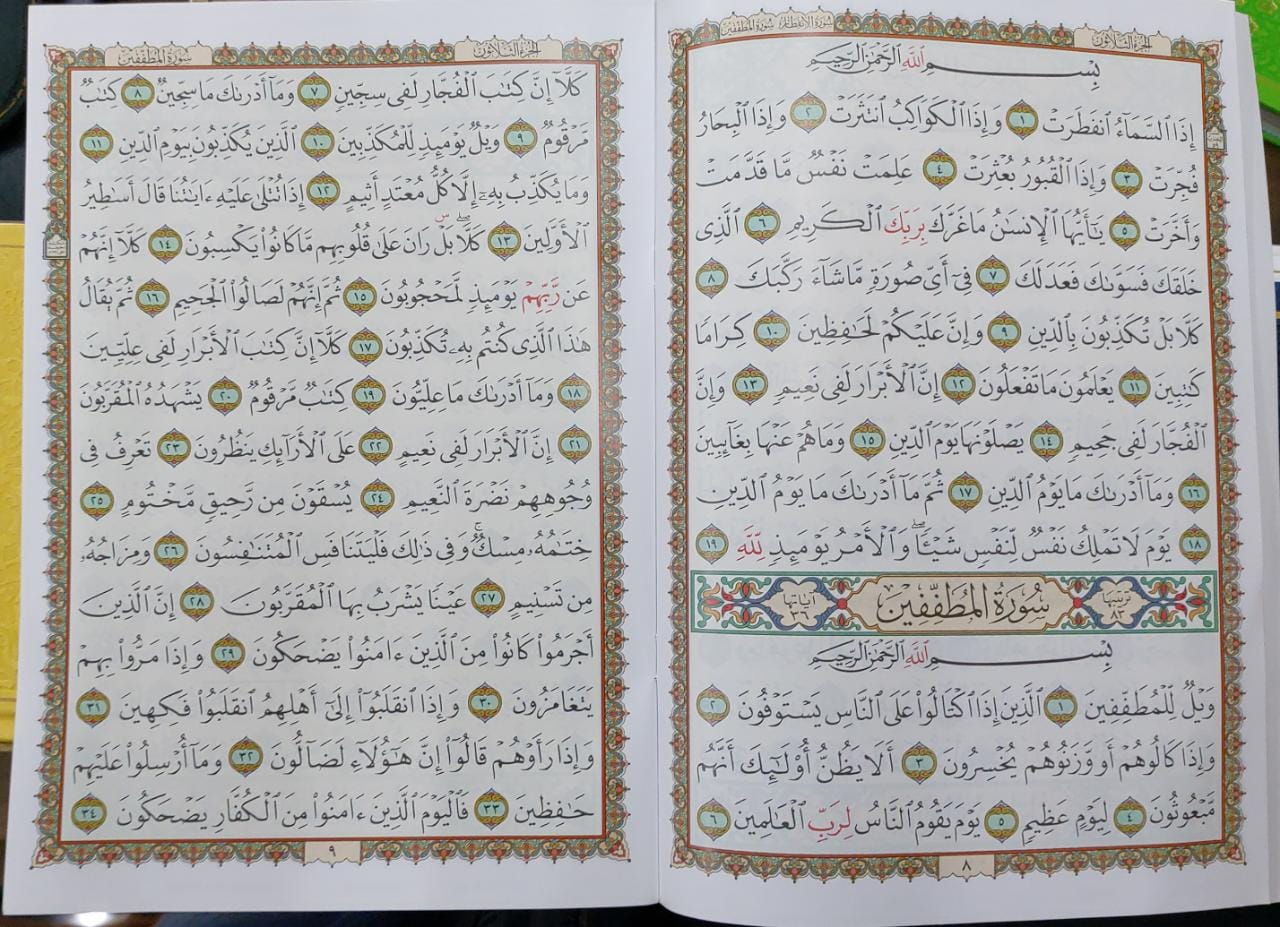 الجزء الثلاثون
سورة الانفطار سورة المطففين
بِسْمِ اللَّهِ الرَّحْمَٰنِ الرَّحِيمِ
إِذَا السَّمَاءُ انفَطَرَتْ ١ وَإِذَا الْكَوَاكِبُ انتَثَرَتْ ٢ وَإِذَا الْبِحَارُ
فُجِّرَتْ ٣ وَإِذَا الْقُبُورُ بُعْثِرَتْ ٤ عَلِمَتْ نَفْسٌ مَّا قَدَّمَتْ
وَأَخَّرَتْ ٥ يَٰٓأَيُّهَا الْإِنسَٰنُ مَا غَرَّكَ بِرَبِّكَ الْكَرِيمِ ٦ الَّذِي
خَلَقَكَ فَسَوَّىٰكَ فَعَدَلَكَ ٧ فِىٓ أَىِّ صُورَةٍ مَّا شَآءَ رَكَّبَكَ ٨
كَلَّا بَلْ تُكَذِّبُونَ بِالدِّينِ ٩ وَإِنَّ عَلَيْكُمْ لَحَٰفِظِينَ ١٠ كِرَامًا
كَٰتِبِينَ ١١ يَعْلَمُونَ مَا تَفْعَلُونَ ١٢ إِنَّ الْأَبْرَارَ لَفِى نَعِيمٍ ١٣ وَإِنَّ
الْفُجَّارَ لَفِى جَحِيمٍ ١٤ يَصْلَوْنَهَا يَوْمَ الدِّينِ ١٥ وَمَا هُمْ عَنْهَا بِغَآئِبِينَ
١٦ وَمَآ أَدْرَىٰكَ مَا يَوْمُ الدِّينِ ١٧ ثُمَّ مَآ أَدْرَىٰكَ مَا يَوْمُ الدِّينِ
١٨ يَوْمَ لَا تَمْلِكُ نَفْسٌ لِّنَفْسٍ شَيْـًٔا ۖ وَالْأَمْرُ يَوْمَئِذٍ لِّلَّهِ ١٩
ترتيبها ٨٣ سُورَةُ الْمُطَفِّفِينَ آياتها ٣٦
بِسْمِ اللَّهِ الرَّحْمَٰنِ الرَّحِيمِ
وَيْلٌ لِّلْمُطَفِّفِينَ ١ الَّذِينَ إِذَا اكْتَالُوا۟ عَلَى النَّاسِ يَسْتَوْفُونَ ٢
وَإِذَا كَالُوهُمْ أَو وَّزَنُوهُمْ يُخْسِرُونَ ٣ أَلَا يَظُنُّ أُو۟لَٰٓئِكَ أَنَّهُم
مَّبْعُوثُونَ ٤ لِيَوْمٍ عَظِيمٍ ٥ يَوْمَ يَقُومُ النَّاسُ لِرَبِّ الْعَٰلَمِينَ ٦
٨
الجزء الثلاثون
سورة المطففين
كَلَّآ إِنَّ كِتَٰبَ الْفُجَّارِ لَفِى سِجِّينٍ ٧ وَمَآ أَدْرَىٰكَ مَا سِجِّينٌ ٨ كِتَٰبٌ
مَّرْقُومٌ ٩ وَيْلٌ يَوْمَئِذٍ لِّلْمُكَذِّبِينَ ١٠ الَّذِينَ يُكَذِّبُونَ بِيَوْمِ الدِّينِ ١١
وَمَا يُكَذِّبُ بِهِۦٓ إِلَّا كُلُّ مُعْتَدٍ أَثِيمٍ ١٢ إِذَا تُتْلَىٰ عَلَيْهِ ءَايَٰتُنَا قَالَ أَسَٰطِيرُ
الْأَوَّلِينَ ١٣ كَلَّا ۖ بَلْ ۜ رَانَ عَلَىٰ قُلُوبِهِم مَّا كَانُوا۟ يَكْسِبُونَ ١٤ كَلَّآ إِنَّهُمْ
عَن رَّبِّهِمْ يَوْمَئِذٍ لَّمَحْجُوبُونَ ١٥ ثُمَّ إِنَّهُمْ لَصَالُوا۟ الْجَحِيمِ ١٦ ثُمَّ يُقَالُ
هَٰذَا الَّذِى كُنتُم بِهِۦ تُكَذِّبُونَ ١٧ كَلَّآ إِنَّ كِتَٰبَ الْأَبْرَارِ لَفِى عِلِّيِّينَ
١٨ وَمَآ أَدْرَىٰكَ مَا عِلِّيُّونَ ١٩ كِتَٰبٌ مَّرْقُومٌ ٢٠ يَشْهَدُهُ الْمُقَرَّبُونَ
٢١ إِنَّ الْأَبْرَارَ لَفِى نَعِيمٍ ٢٢ عَلَى الْأَرَآئِكِ يَنظُرُونَ ٢٣ تَعْرِفُ فِى
وُجُوهِهِمْ نَضْرَةَ النَّعِيمِ ٢٤ يُسْقَوْنَ مِن رَّحِيقٍ مَّخْتُومٍ ٢٥
خِتَٰمُهُۥ مِسْكٌ ۚ وَفِى ذَٰلِكَ فَلْيَتَنَافَسِ الْمُتَنَٰفِسُونَ ٢٦ وَمِزَاجُهُۥ
مِن تَسْنِيمٍ ٢٧ عَيْنًا يَشْرَبُ بِهَا الْمُقَرَّبُونَ ٢٨ إِنَّ الَّذِينَ
أَجْرَمُوا۟ كَانُوا۟ مِنَ الَّذِينَ ءَامَنُوا۟ يَضْحَكُونَ ٢٩ وَإِذَا مَرُّوا۟ بِهِمْ
يَتَغَامَزُونَ ٣٠ وَإِذَا انقَلَبُوٓا۟ إِلَىٰٓ أَهْلِهِمُ انقَلَبُوا۟ فَكِهِينَ ٣١
وَإِذَا رَأَوْهُمْ قَالُوٓا۟ إِنَّ هَٰٓؤُلَآءِ لَضَآلُّونَ ٣٢ وَمَآ أُرْسِلُوا۟ عَلَيْهِمْ
حَٰفِظِينَ ٣٣ فَالْيَوْمَ الَّذِينَ ءَامَنُوا۟ مِنَ الْكُفَّارِ يَضْحَكُونَ ٣٤
٩